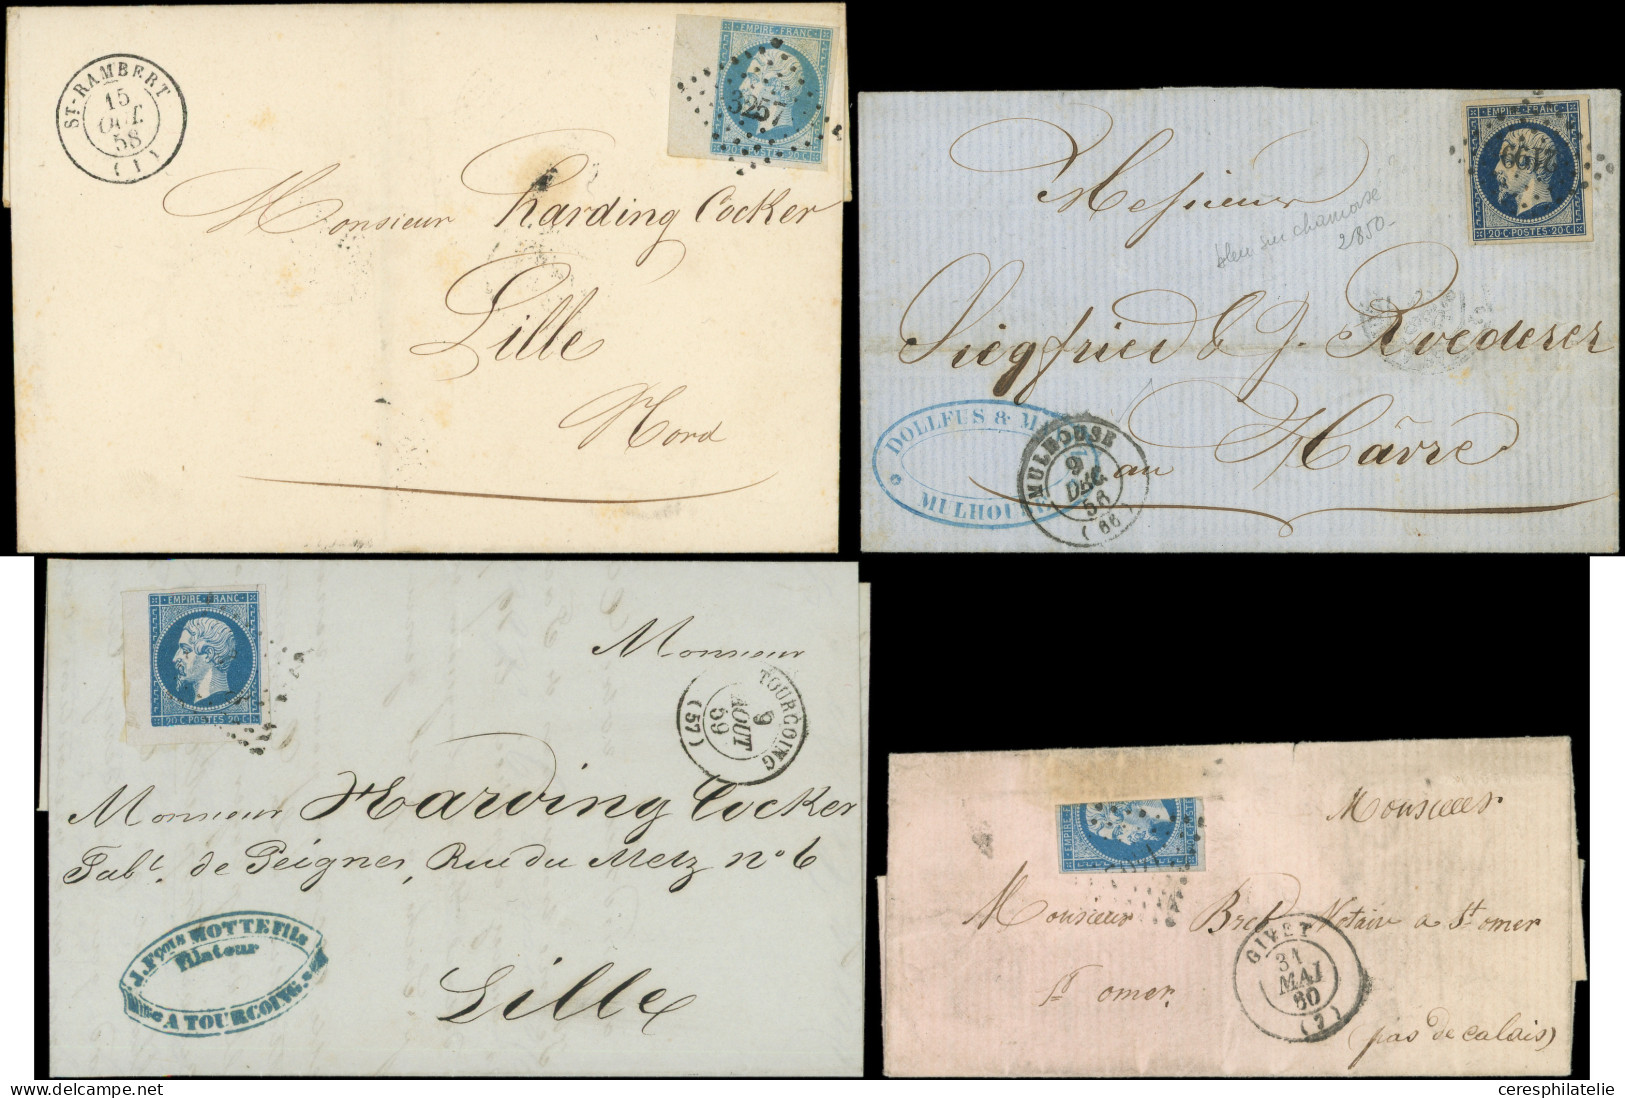 ST-RAMBERT
15
OCT.
58
(1)
EMPIRE·FRANC
3257
20 C·POSTES·20 C
Monsieur Harding Cocker
Lille
Nord
EMPIRE·FRANC
20 C·POSTES·20 C
Messieurs
bleu sur chamoisé
2850-
Siegfried & J. Roederer
au Hâvre
DOLLFUS & M
MULHOU
MULHOUSE
9
DEC.
56
(66)
EMPIRE·FRANC
20 C·POSTES·20 C
Monsieur
TOURCOING
9
AOUT
59
(57)
Monsieur Harding Cocker
Fabt. de Peignes, Rue du Metz nº 6
Lille
J. Fçois MOTTE Fils
Filateur
A TOURCOING
EMPIRE
Monsieur
Monsieur Bret Notaire a St omer
St omer
(pas de calais)
GIVET
31
MAI
60
(7)
ceresphilatelie